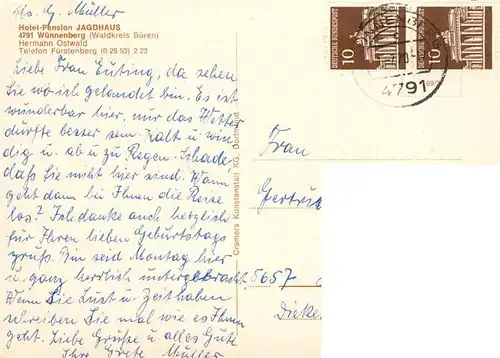 Hotel-Pension JAGDHAUS
4791 Wünnenberg (Waldkreis Büren)
Hermann Ostwald
Telefon Fürstenberg (0 29 53) 2 23
Liebe Frau Euting, da sehen
Sie wo ich gelandet bin. Es ist
wunderbar hier, nur das Wetter
dürfte besser sein. Kalt u. win
dig u. ab u. zu Regen. Schade
daß Sie nicht hier sind. Wann
geht dann bei Ihnen die Reise
los? Ich danke auch herzlich
für Ihren lieben Geburtstags
gruß. Bin seid Montag hier
u. ganz herrlich untergebracht.
Wenn Sie Lust u. Zeit haben
schreiben Sie mal wie es Ihnen
geht. Liebe Grüße u. alles Gute
Ihre Grete Müller
Cramers Kunstanstalt KG, Dortmund
DEUTSCHE BUNDESPOST
10
DEUTSCHE BUNDESPOST
10
4791
Frau
Gertru
5657